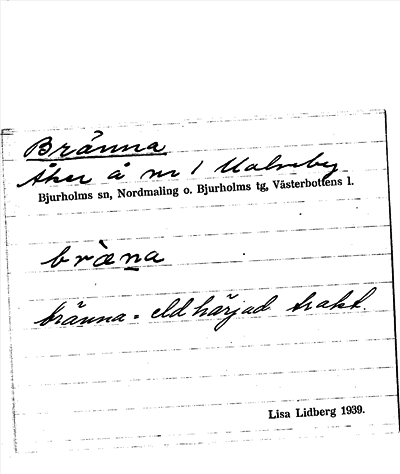 Bränna
Åker å nr 1 Malmby
Bjurholms sn, Nordmaling o. Bjurholms tg, Västerbottens l.
bræ̀na
bränna = eldhärjad trakt.
Lisa Lidberg 1939.